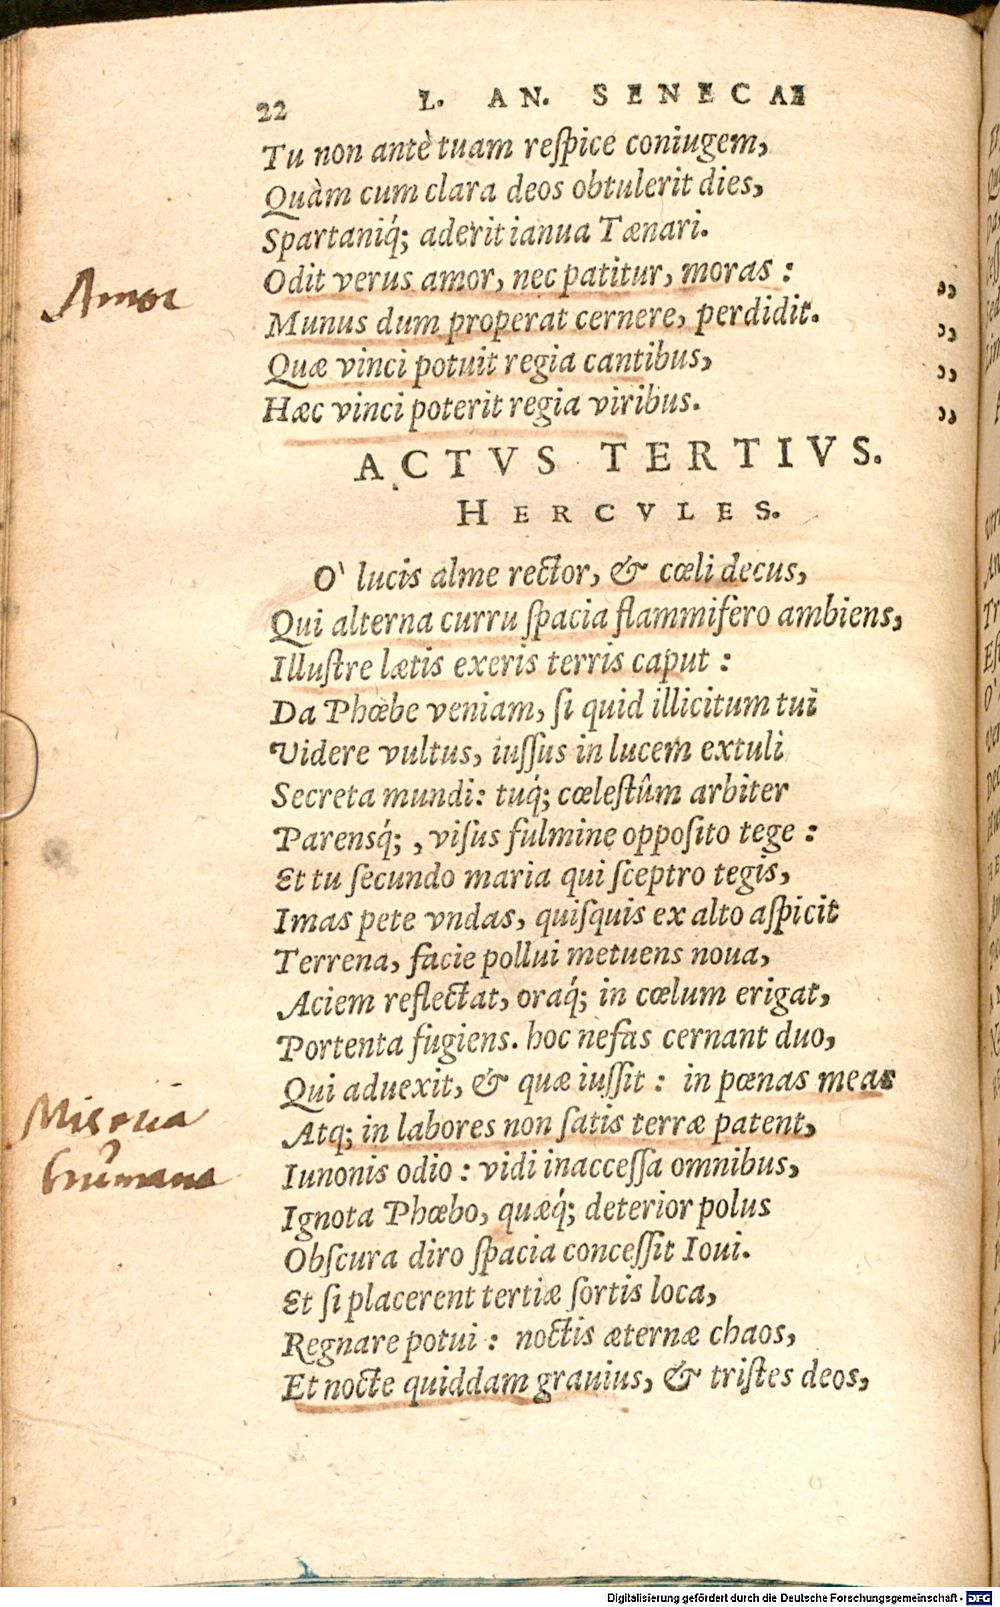 22 L. AN. SENECAE
Tu non antè tuam reſpice coniugem,
Quàm cum clara deos obtulerit dies,
Spartaniq́; aderit ianua Tænari.
Odit verus amor, nec patitur, moras : ,,
Amor
Munus dum properat cernere, perdidit. ,,
Quæ vinci potuit regia cantibus, ,,
Hæc vinci poterit regia viribus. ,,
ACTVS TERTIVS.
HERCVLES.
O' lucis alme rector, & cœli decus,
Qui alterna curru ſpacia flammifero ambiens,
Illuſtre lætis exeris terris caput :
Da Phœbe veniam, ſi quid illicitum tui
Videre vultus, iuſſus in lucem extuli
Secreta mundi: tuq́; cœleſtûm arbiter
Parensq́; , viſus fulmine oppoſito tege :
Et tu ſecundo maria qui ſceptro tegis,
Imas pete vndas, quiſquis ex alto aſpicit
Terrena, facie pollui metuens noua,
Aciem reflectat, oraq́; in cœlum erigat,
Portenta fugiens. hoc nefas cernant duo,
Qui aduexit, & quæ iuſſit : in pœnas meas
Miseria
Atq; in labores non ſatis terræ patent,
humana
Iunonis odio : vidi inacceſſa omnibus,
Ignota Phœbo, quæq́; deterior polus
Obſcura diro ſpacia conceſſit Ioui.
Et ſi placerent tertiæ ſortis loca,
Regnare potui : noctis æternæ chaos,
Et nocte quiddam grauius, & triſtes deos,
Digitalisierung gefördert durch die Deutsche Forschungsgemeinschaft - DFG